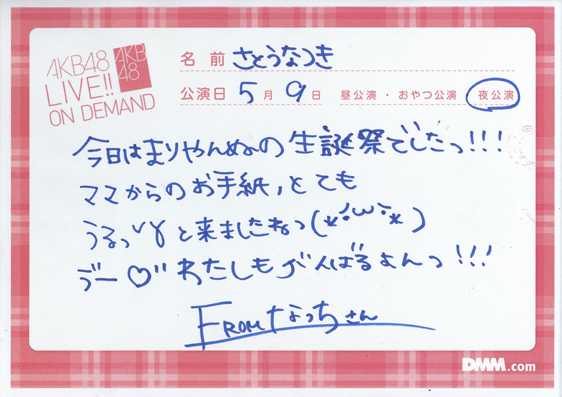 AKB48
LIVE!!
ON DEMAND
AKB
48
名前 さとうなつき
公演日 5月 9日 昼公演・おやつ公演 夜公演
今日はまりやんぬの生誕祭でしたっ!!!
ママからのお手紙、とても
うるっと来ましたねっ(*´ω`*)
デー♡わたしもがんばるよんっ!!!
FROMなっちさん
DMM.com